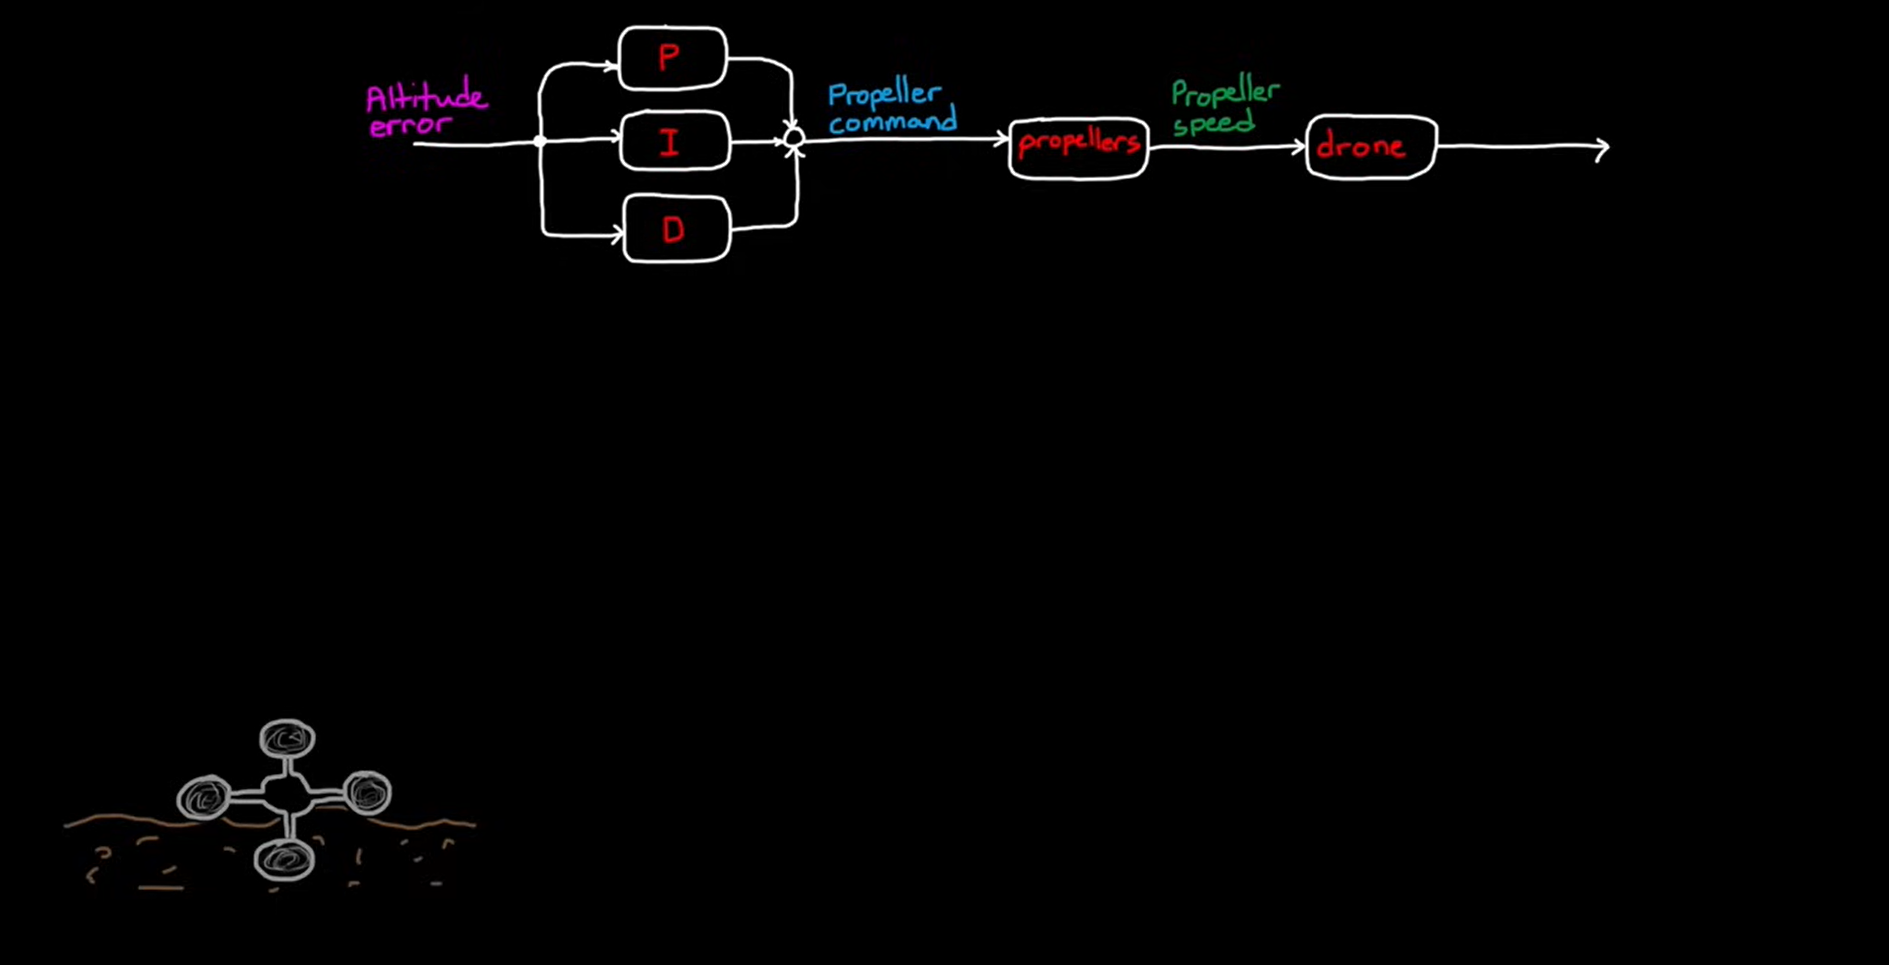 P
Altitude
error
I
D
Propeller
command
propellers
Propeller
speed
drone